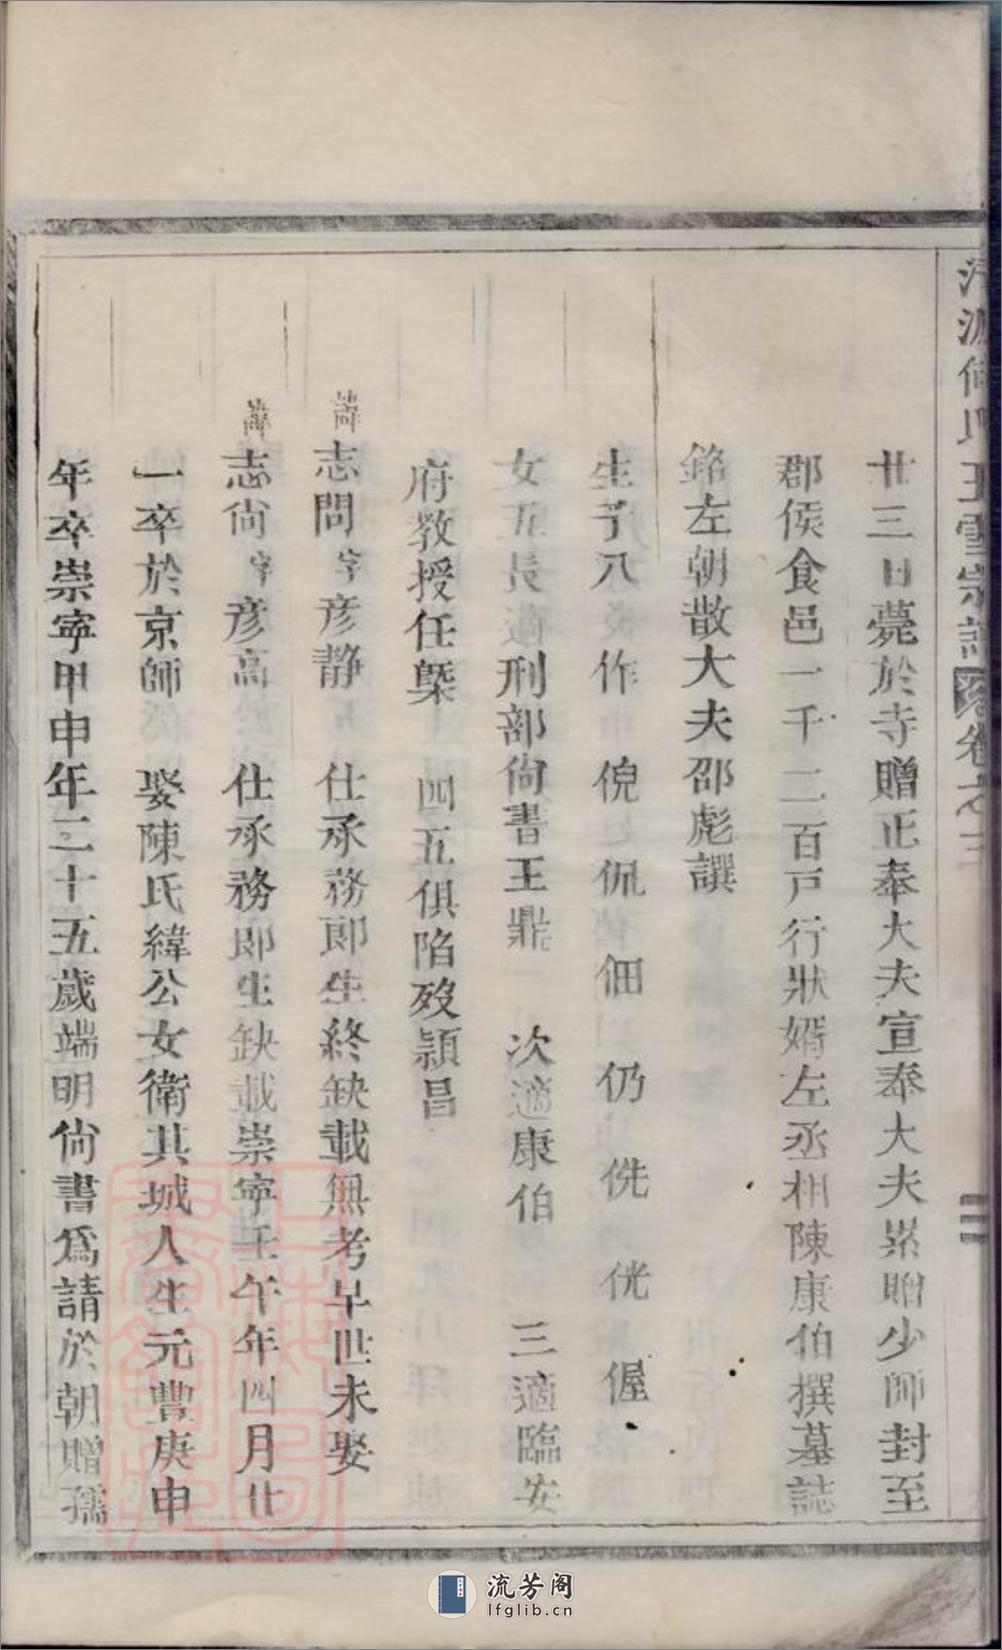 何氏玉雪宗譜 卷之三
廿三日薨於寺贈正奉大夫宣奉大夫累贈少師封至
郡侯食邑一千二百戸行狀婿左丞相陳康伯撰墓誌
銘左朝散大夫邵彪譔
生子八 作 倪 侃 佃 仍 侁 侊 偓
女五長適刑部尙書王鼎 次適康伯 三適臨安
府教授任槩 四五俱陷歿潁昌
志問字彥靜 仕承務郎生終缺載無考早世未娶
志尙字彥高 仕承務郎生缺載崇寜壬午年四月廿
一卒於京師 娶陳氏緯公女衛其城人生元豐庚申
年卒崇寜甲申年二十五歲端明尙書爲請於朝贈孺
流芳阁
lfglib.cn